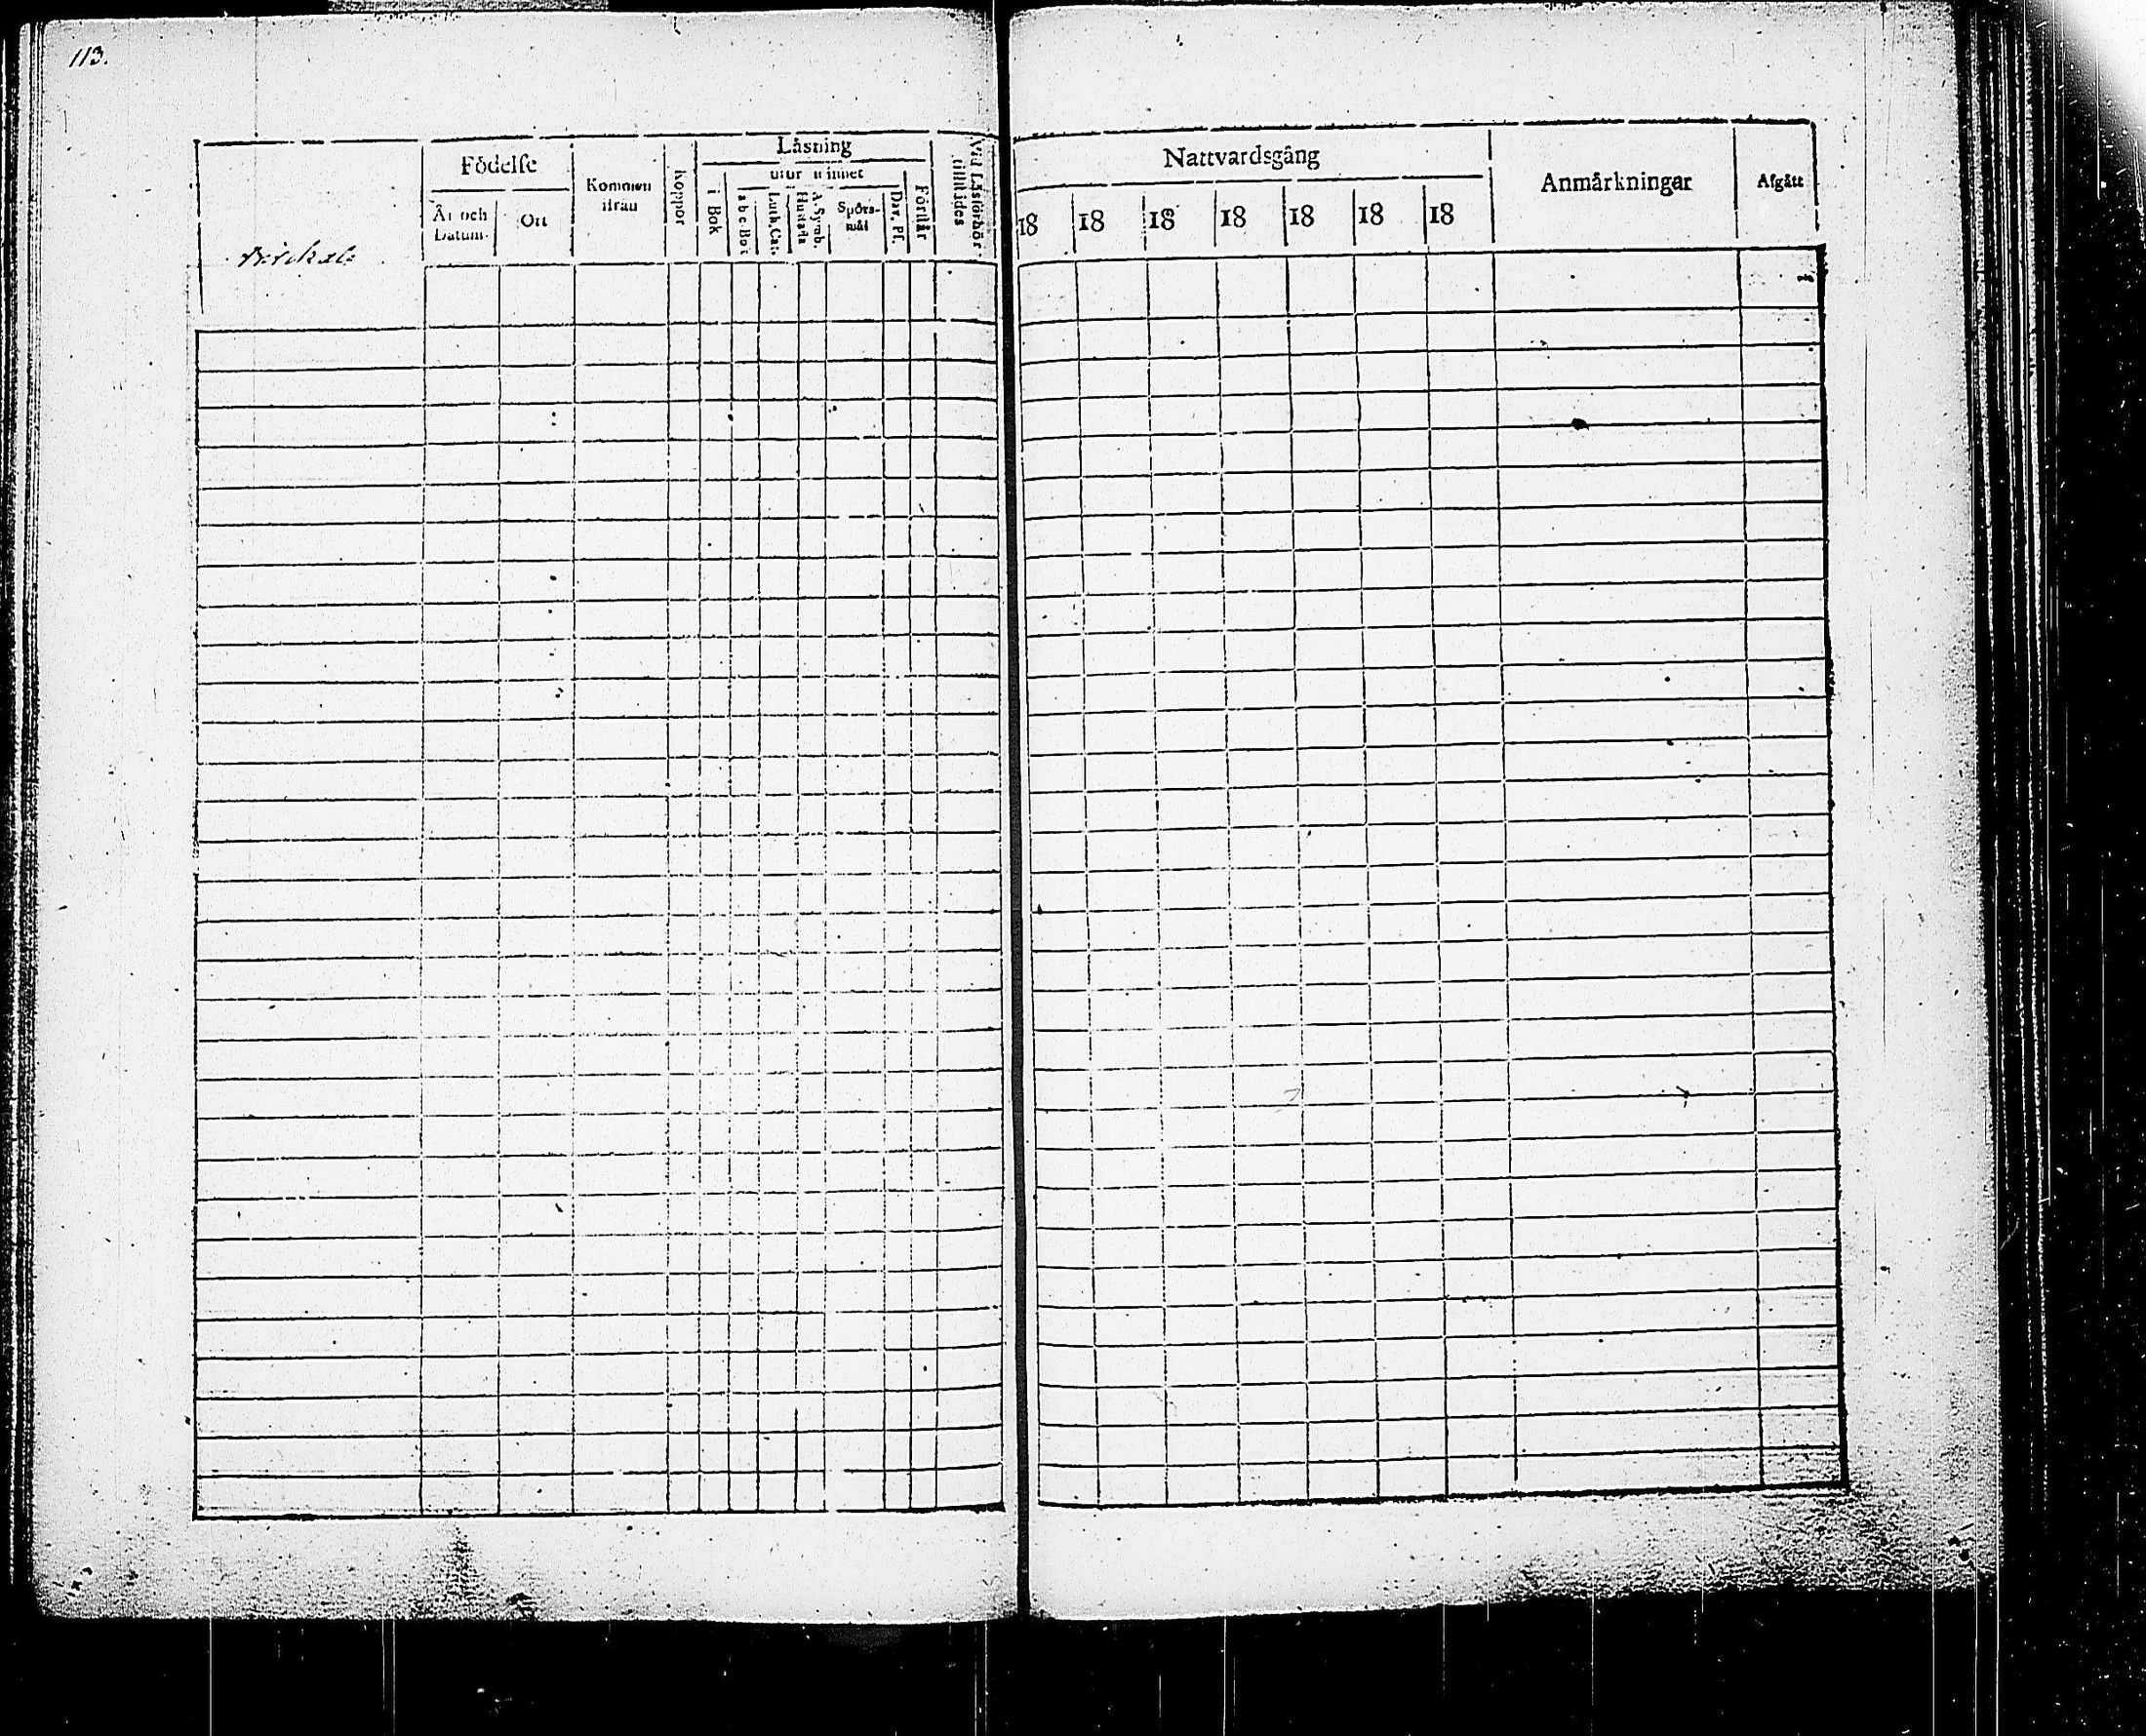 113.
Födelse
År och Datum.
Ort
Kommen ifrån
Koppor
Läsning
utur minnet
i Bok
a b c-Bok
Luth. Cat.
Hustafla
A. Symb.
Spörs-mål
Dav. Ps.
Förstår
Vid Läsförhör tillstädes
Nattvardsgång
18 18 18 18 18 18 18
Anmärkningar
Afgått